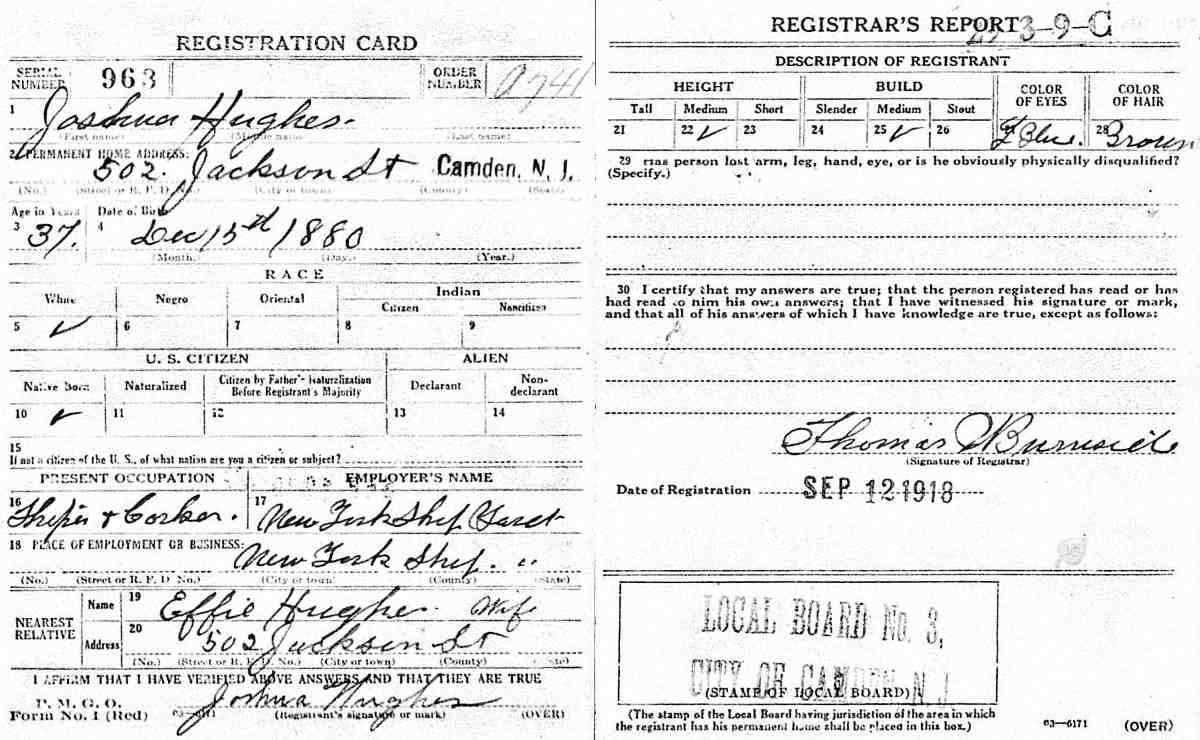 REGISTRATION CARD
SERIAL NUMBER 963 ORDER NUMBER A741
1 Joshua Hughes
(First name) (Middle name) (Last name)
2 PERMANENT HOME ADDRESS:
502 Jackson St Camden, N. J.
(No.) (Street or R. F. D. No.) (City or town) (County) (State)
Age in Years Date of Birth
3 37. 4 Dec 15th 1880
(Month.) (Day.) (Year.)
RACE
White Negro Oriental Indian
Citizen Noncitizen
5 ✓ 6 7 8 9
U. S. CITIZEN ALIEN
Native Born Naturalized Citizen by Father's Naturalization Before Registrant's Majority Declarant Non-declarant
10 ✓ 11 12 13 14
15
If not a citizen of the U. S., of what nation are you a citizen or subject?
PRESENT OCCUPATION EMPLOYER'S NAME
16 & 17 New York Ship
18 PLACE OF EMPLOYMENT OR BUSINESS:
New York Ship. "
(No.) (Street or R. F. D. No.) (City or town) (County) (State)
NEAREST RELATIVE
Name 19 Effie Hughes Wife
Address 20 502 Jackson St
(No.) (Street or R. F. D. No.) (City or town) (County) (State)
I AFFIRM THAT I HAVE VERIFIED ABOVE ANSWERS AND THAT THEY ARE TRUE
P. M. G. O.
Form No. 1 (Red) 03—6171 Joshua Hughes
(Registrant's signature or mark) (OVER)
REGISTRAR'S REPORT
3-9-C
DESCRIPTION OF REGISTRANT
HEIGHT BUILD COLOR OF EYES COLOR OF HAIR
Tall Medium Short Slender Medium Stout
21 22 ✓ 23 24 25 ✓ 26 27 Blue 28 Brown
29 Has person lost arm, leg, hand, eye, or is he obviously physically disqualified?
(Specify.)
30 I certify that my answers are true; that the person registered has read or has
had read to him his own answers; that I have witnessed his signature or mark,
and that all of his answers of which I have knowledge are true, except as follows:
Thomas
(Signature of Registrar)
Date of Registration SEP 12 1918
LOCAL BOARD No. 3,
CITY OF CAMDEN, N. J.
(STAMP OF LOCAL BOARD)
(The stamp of the Local Board having jurisdiction of the area in which
the registrant has his permanent home shall be placed in this box.)
03—6171 (OVER)